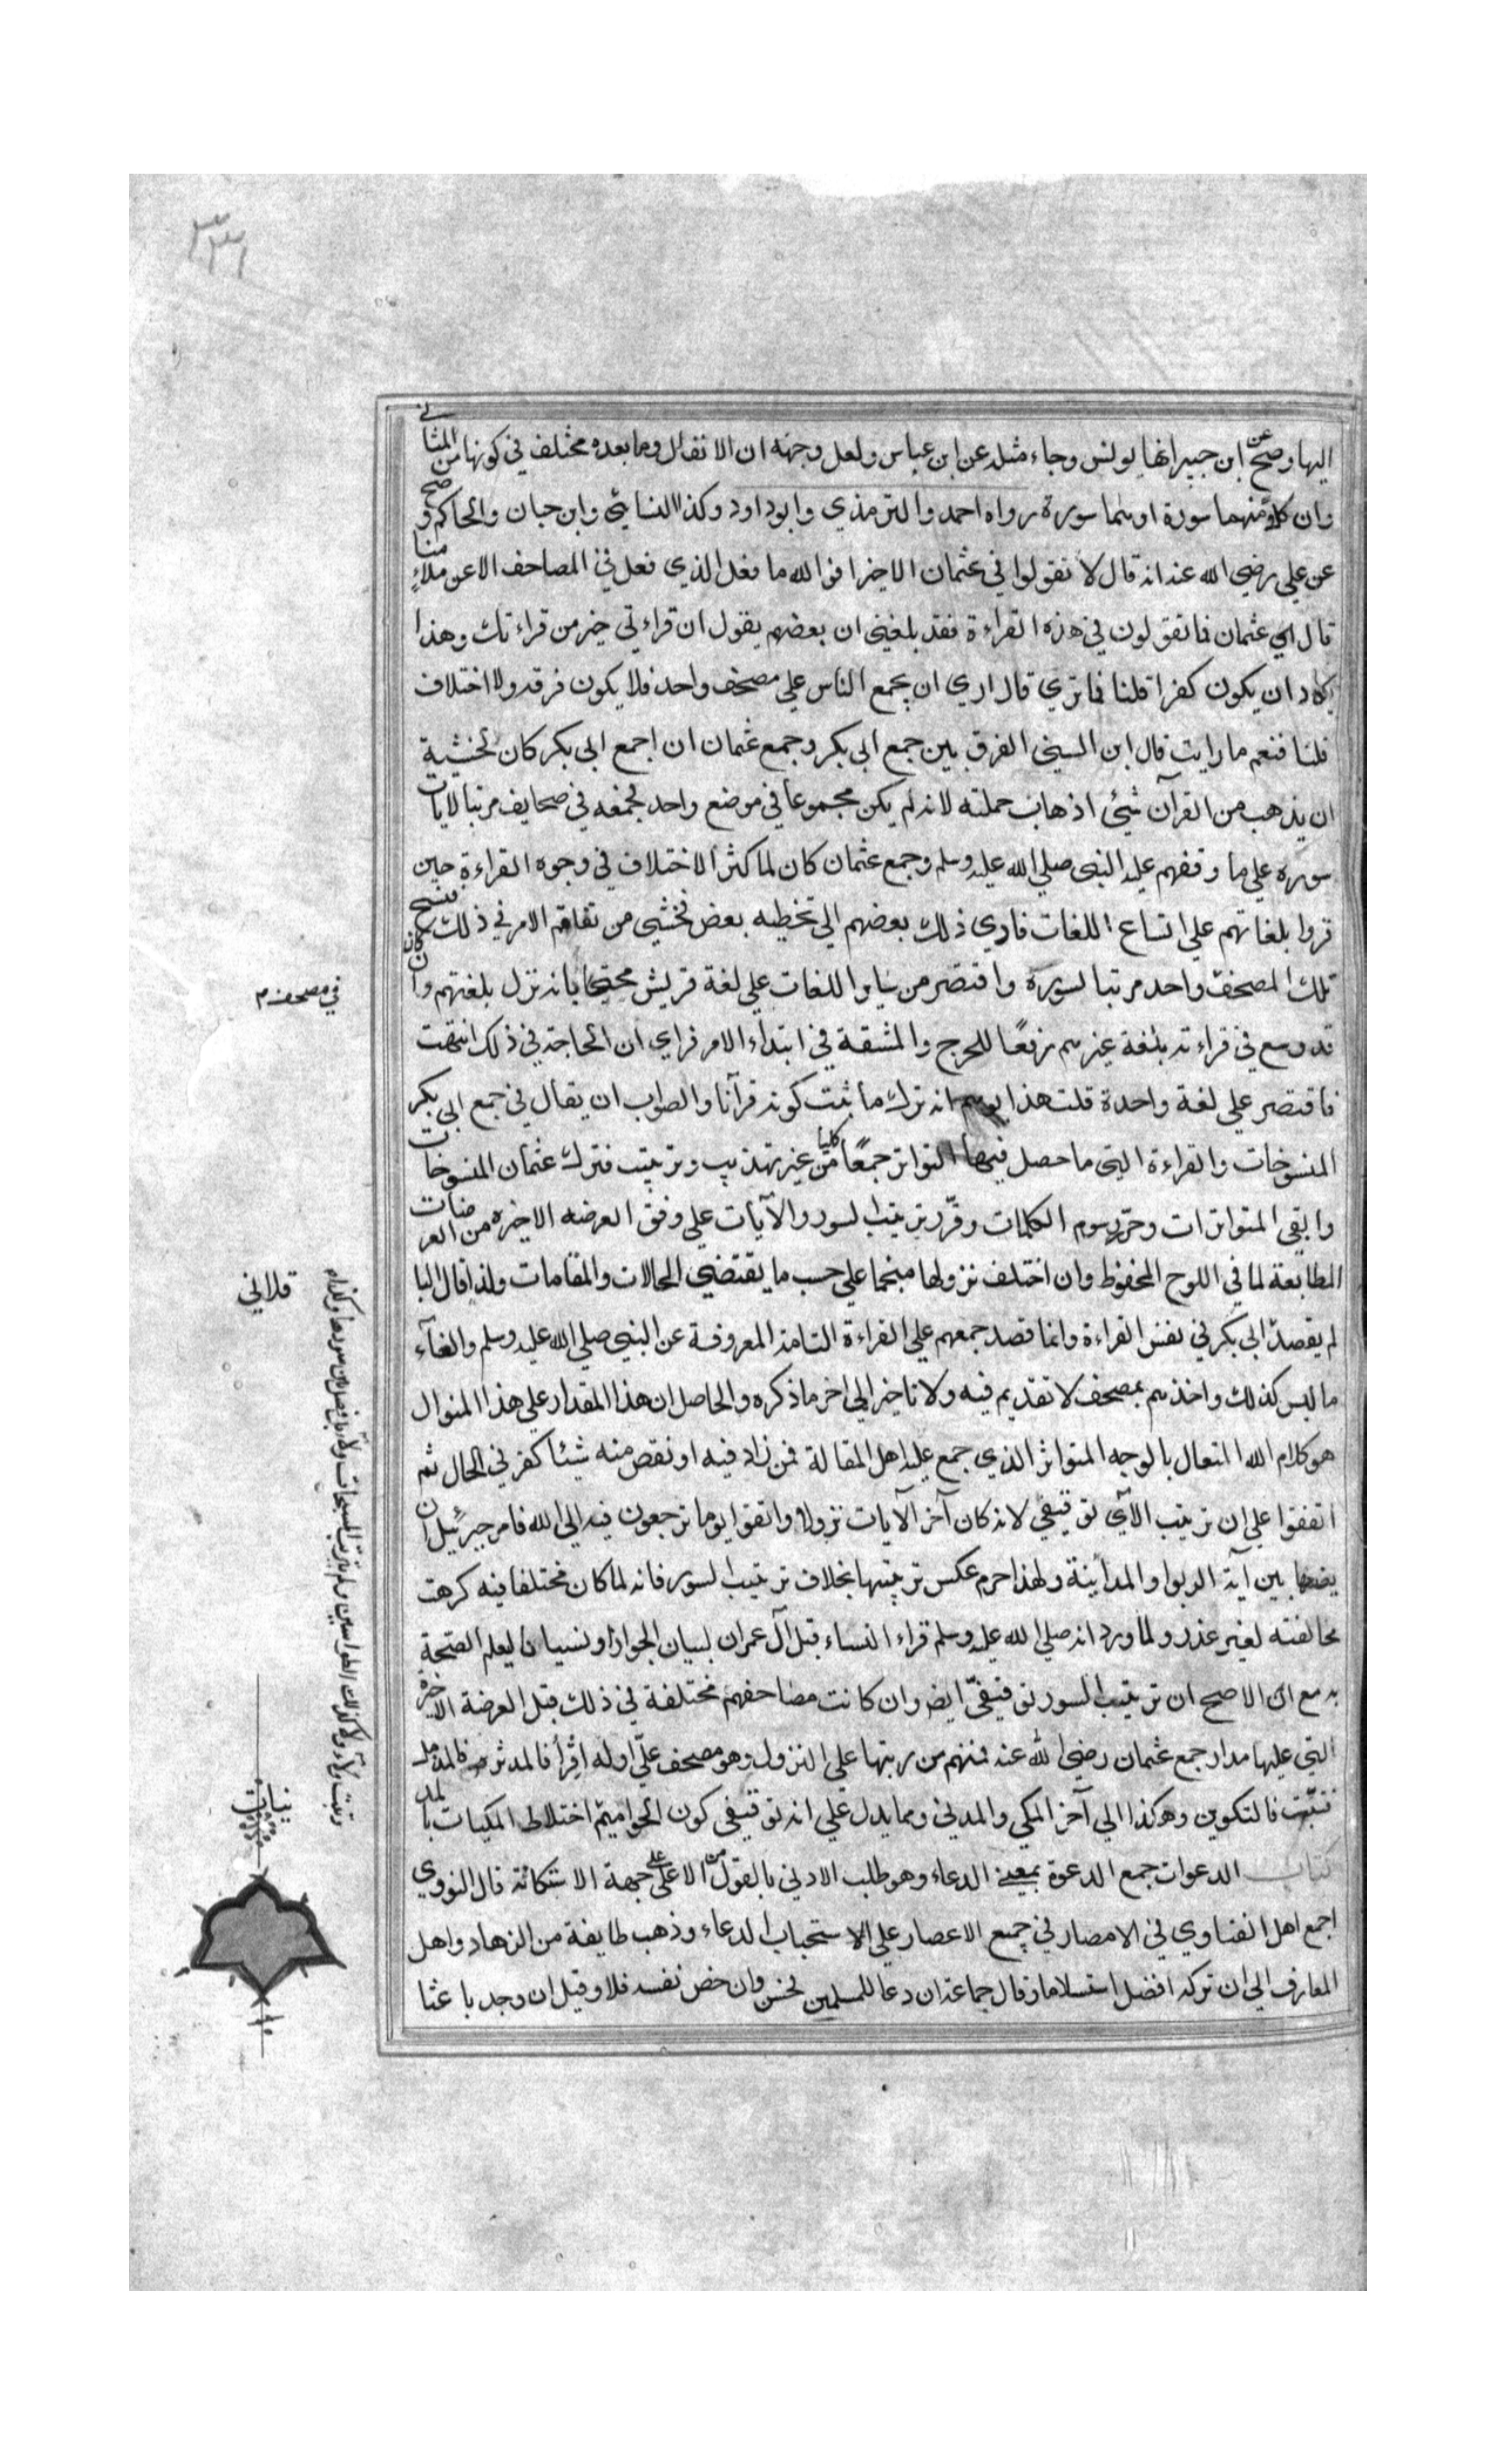 ٣٣١
اليها وصح عن ابن جبير انها يونس وجاء مثله عن ابن عباس ولعل وجهه ان الانفال وما بعده مختلف في كونها من المثاني
وان كلا منهما سورة او هما سورة رواه احمد والترمذي وابو داود وكذا النسائي وابن حبان والحاكم وصح
عن علي رضي الله عنه انه قال لا تقولوا في عثمان الا خيرا فوالله ما فعل الذي فعل في المصاحف الا عن ملاء منا
قال اي عثمان فما تقولون في هذه القراءة فقد بلغني ان بعضهم يقول ان قراءتي خير من قراءتك وهذا
يكاد ان يكون كفرا قلنا فما تري قال اري ان يجمع الناس علي مصحف واحد فلا يكون فرقه ولا اختلاف
قلنا فنعم ما رايت قال ابن السيخي الفرق بين جمع ابي بكر وجمع عثمان ان اجمع ابي بكر كان لخشية
ان يذهب من القرآن شيئ اذهاب حملته لانه لم يكن مجموعا في موضع واحد فجمعه في صحايف مرتبا لايات
سوره علي ما وقفهم عليه النبي صلي الله عليه وسلم وجمع عثمان كان لما كثر الاختلاف في وجوه القراءة حين
قروا بلغاتهم علي اتساع اللغات فادي ذلك بعضهم الي تخطيه بعض فخشي من تفاقم الامر في ذلك فنسخ
تلك المصحف واحد مرتبا لسوره واقتصر من ساير اللغات علي لغة قريش محتجا بانه نزل بلغتهم وان كان
في مصحف م
قد وسع في قراءته بلغة غيرهم رفعًا للحرج والمشقة في ابتداء الامر فراي ان الحاجة في ذلك انتهت
فاقتصر علي لغة واحدة قلت هذا يوهم انه ترك ما ثبت كونه قرآنا والصواب ان يقال في جمع ابي بكر
المنسوخات والقراءة التي ما حصل فيها التواتر جمعًا كليا من غير تهذيب وترتيب فترك عثمان المنسوخات
وابقي المتواترات وحرر رسوم الكلمات وقرّر ترتيب السور والآيات علي وفق العرضه الاخيره من العرضات
المطابقة لما في اللوح المحفوظ وان اختلف نزولها منجما علي حسب ما يقتضي الحالات والمقامات ولذا قال البا
قلاني
لم يقصد ابي بكر في نفس القراءة وانما قصد جمعهم علي القراءة التامة المعروفة عن النبي صلي الله عليه وسلم والغآء
ما ليس كذلك واخذهم بمصحف لا تقديم فيه ولا تاخير الي اخر ما ذكره والحاصل ان هذا المقدار علي هذا المنوال
هو كلام الله المتعال بالوجه المتواتر الذي جمع عليه اهل المقالة فمن زاد فيه او نقص منه شيئا كفر في الحال ثم
اتفقوا علي ان ترتيب الآي توقيفي لانه كان آخر الآيات نزولا واتقوا يوما ترجعون فيه الي الله فامر جبرئيل ان
يضعها بين آية الربوا والمداينة ولهذا حرم عكس ترتيبها بخلاف ترتيب السور فانه لما كان مختلفا فيه كرهت
مخالفته لغير عذر ولما ورد انه صلي الله عليه وسلم قراء النساء قبل آل عمران لبيان الجواز او نسيان ليعلم الصحة
به مع ان الاصح ان ترتيب السور توقيفيّ ايضا وان كانت مصاحفهم مختلفة في ذلك قبل العرضة الاخيرة
التي عليها مدار جمع عثمان رضي الله عنه فمنهم من رتبها علي النزول وهو مصحف عليّ اوله اقرأ فالمدثر فالمزمل
فتبّت فالتكوين وهكذا الي آخر المكي والمدني ومما يدل علي انه توقيفي كون الحواميم اختلاط المكيات بالمد
نيات
كتاب الدعوات جمع الدعوة بمعني الدعاء وهو طلب الادني بالقول من الاعلي علي جهة الاستكانة قال النووي
اجمع اهل الفتاوي في الامصار في جميع الاعصار علي الاستحباب الدعاء وذهب طايفة من الزهاد واهل
المعارف الي ان تركه افضل استسلاما وقال جماعة ان دعا للمسلمين فحسن وان خص نفسه فلا وقيل ان وجد باعثا